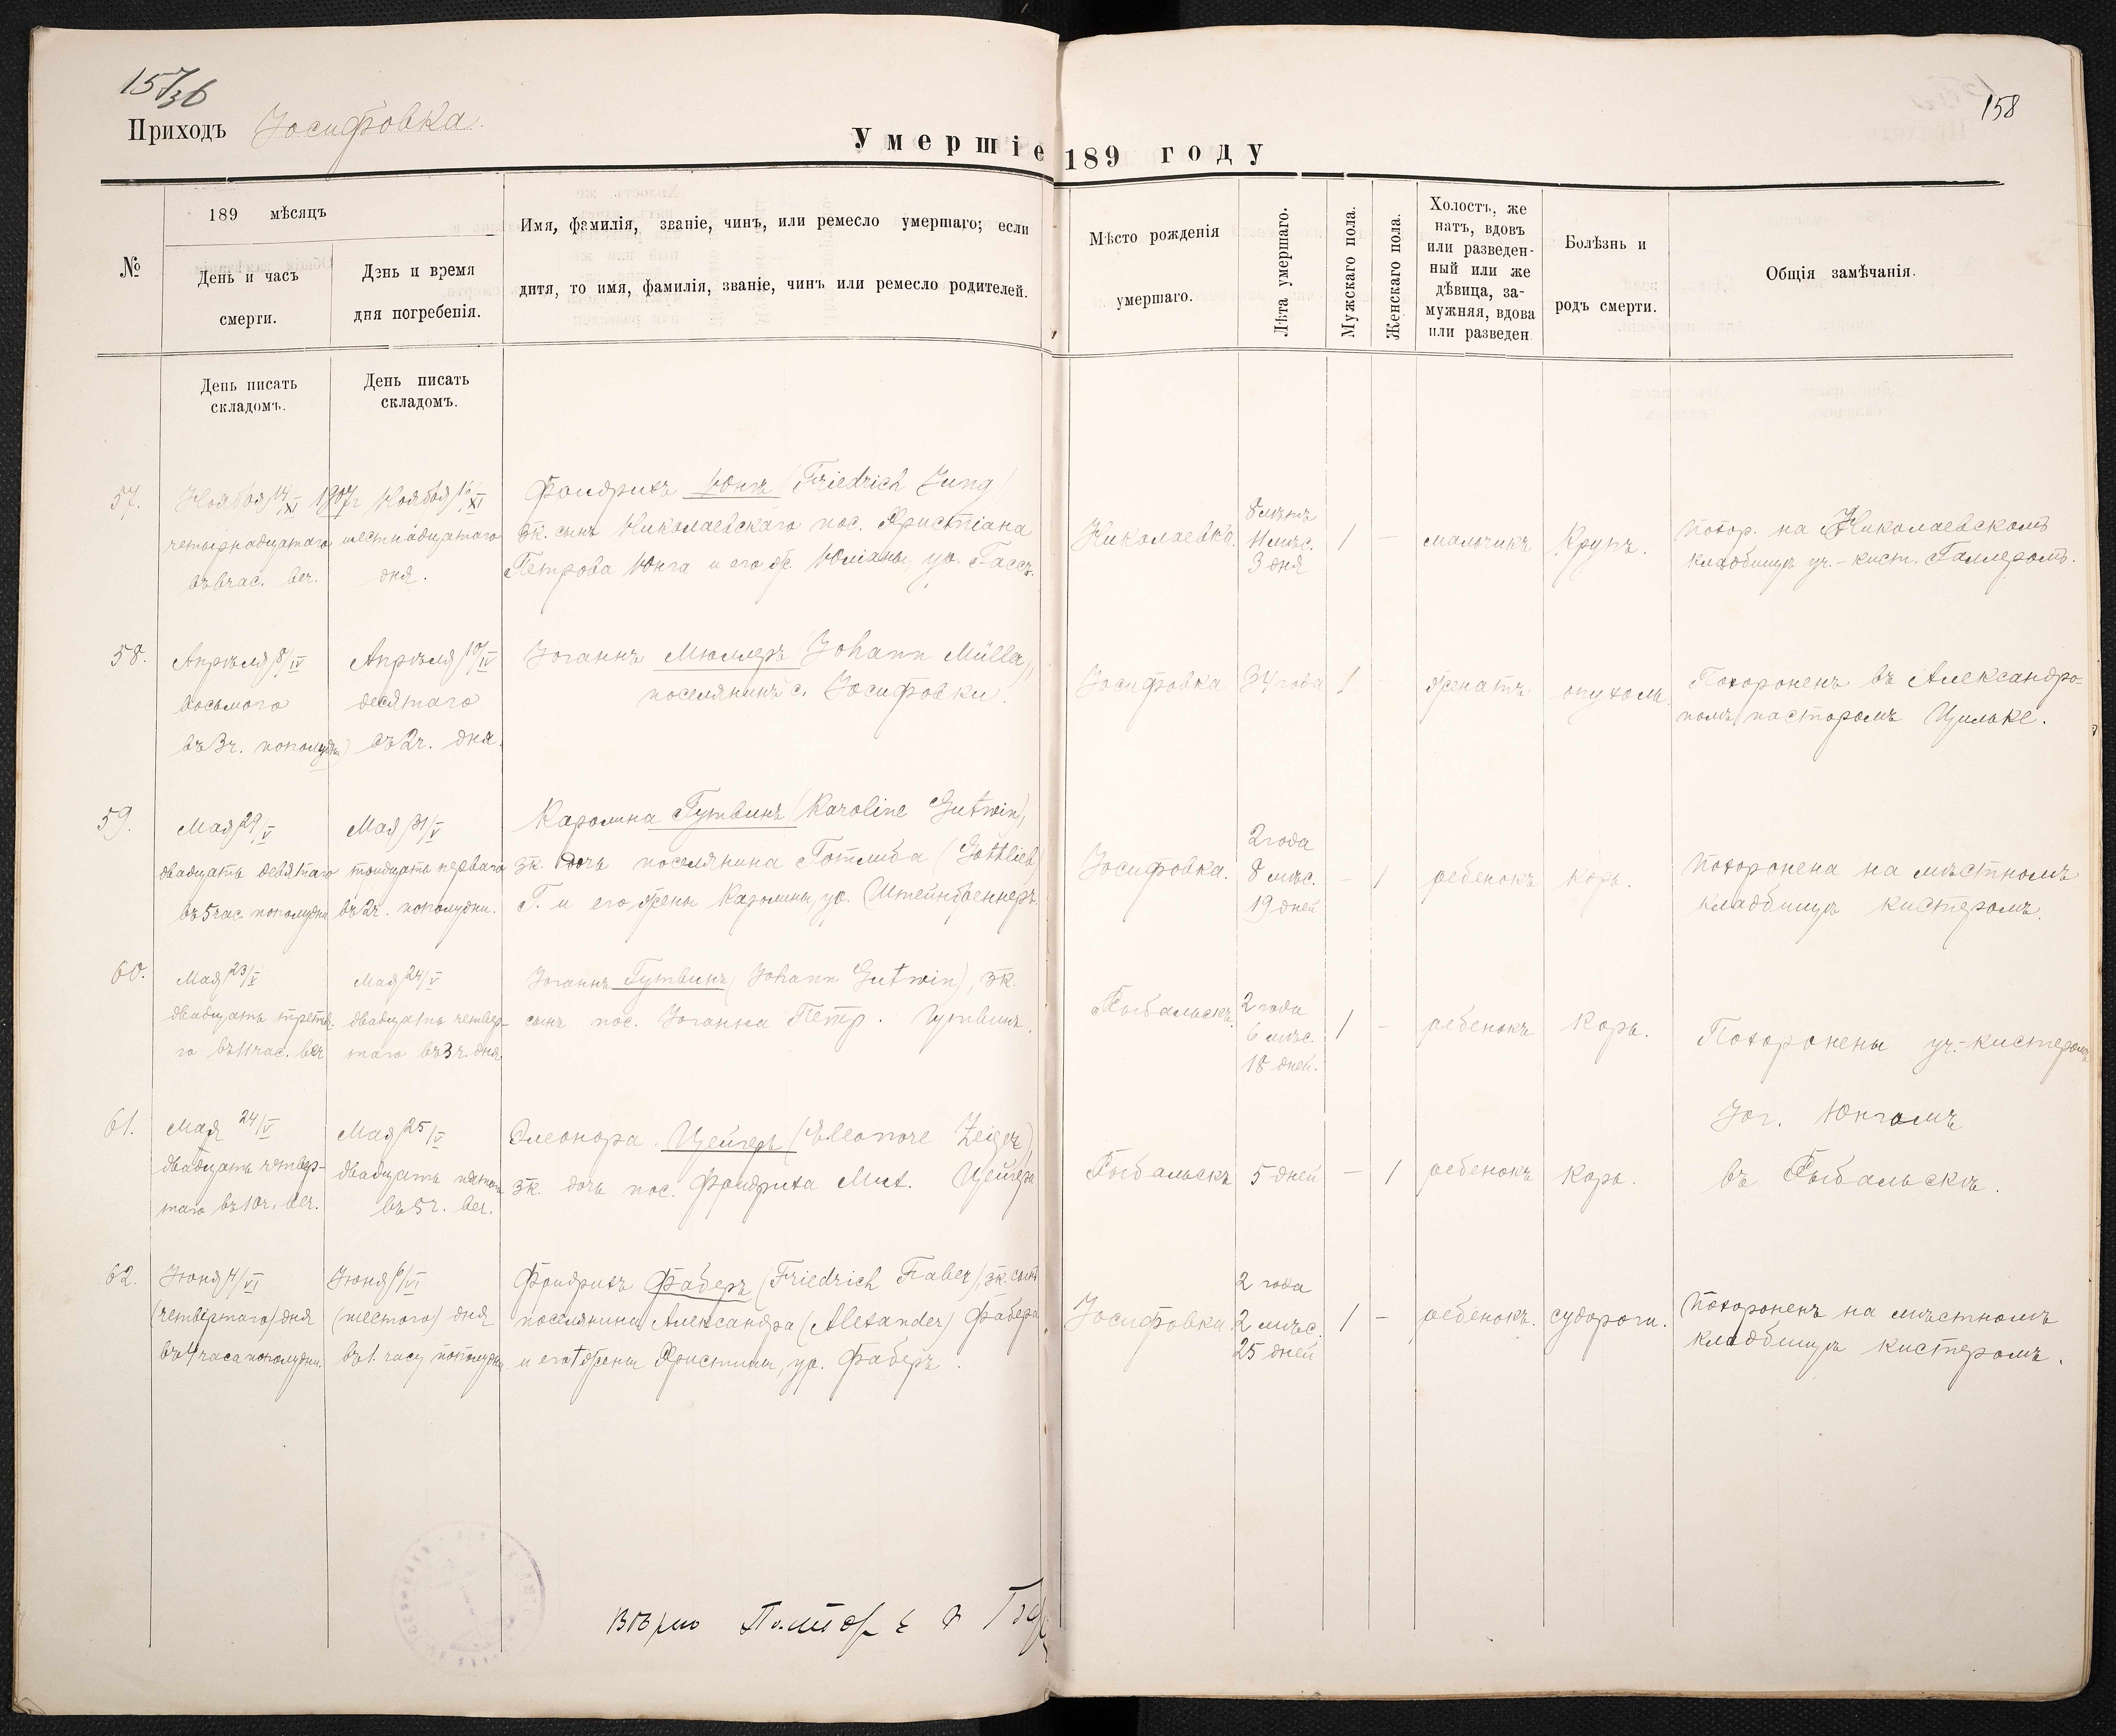 157/36
158
Приходъ Іосифовка.
Умершіе 189 году
№
189 мѣсяцъ
День и часъ смерти.
День и время дня погребенія.
Имя, фамилія, званіе, чинъ, или ремесло умершаго; если
дитя, то имя, фамилія, званіе, чинъ или ремесло родителей.
Мѣсто рожденія
умершаго.
Лѣта умершаго.
Мужскаго пола.
Женскаго пола.
Холостъ, же
натъ, вдовъ
или разведен-
ный или же
дѣвица, за-
мужняя, вдова
или разведен
Болѣзнь и
родъ смерти.
Общія замѣчанія.
День писать
складомъ.
День писать
складомъ.
57.
Ноября 14/XI 1907г
четырнадцатаго
въ 6 час. веч.
Ноября 16/XI
шестнадцатаго
дня.
Фридрихъ Юнгъ (Friedrich Jung)
зк. сынъ Николаевскаго пос. Христіана
Петрова Юнга и его ж. Юліаны, ур. Гассъ.
Николаевка.
8 лѣтъ
11 мѣс.
3 дня
1
—
мальчикъ
Крупъ.
Похор. на Николаевскомъ
кладбищѣ уч.-кист. Галлеромъ.
58.
Апрѣля 8/IV
восьмого
въ 3 ч. пополудни
Апрѣля 10/IV
десятаго
въ 2 ч. дня.
Іоганнъ Мюллеръ (Johann Müller),
поселянинъ с. Іосифовки.
Іосифовка
34 года
1
—
женатъ
опухоль.
Похороненъ въ Александро-
полѣ пасторомъ Цильке.
59.
Мая 29/V
двадцать девятаго
въ 5 час. пополудни
Мая 31/V
тридцать перваго
въ 2 ч. пополудни.
Каролина Гутвинъ (Karoline Gutwin),
зк. дочь поселянина Готлиба (Gottlieb)
Г. и его жены Каролины, ур. Штейнбреннеръ.
Іосифовка.
2 года
8 мѣс.
19 дней
—
1
ребенокъ
корь.
Похоронена на мѣстномъ
кладбищѣ кистеромъ.
60.
Мая 23/V
двадцать третья-
го въ 11 час. веч
Мая 24/V
двадцать четвер-
таго въ 3 ч. дня.
Іоганнъ Гутвинъ (Johann Gutwin), зк.
сынъ пос. Іоганна Петр. Гутвинъ.
Рыбальскъ.
2 года
6 мѣс.
18 дней.
1
—
ребенокъ
Корь.
Похоронены уч.-кистеромъ
61.
Мая 24/V
двадцать четвер-
таго въ 10 ч. веч.
Мая 25/V
двадцать пятаго
въ 5 ч. веч.
Элеонора Цейгеръ (Eleonore Zeiger),
зк. дочь пос. Фридриха Мих. Цейгера
Рыбальскъ
5 дней
—
1
ребенокъ
корь.
Іог. Юнгомъ
въ Рыбальскѣ.
62.
Іюня 4/VI
(четвёртаго) дня
въ 4 часа пополудни.
Іюня 6/VI
(шестого) дня
въ 1 часу пополудни
Фридрихъ Фаберъ (Friedrich Faber), зк. сынъ
поселянина Александра (Alexander) Фабера
и его † жены Христины, ур. Фаберъ.
Іосифовка
2 года
2 мѣс.
25 дней
1
—
ребенокъ.
судороги.
Похороненъ на мѣстномъ
кладбищѣ кистеромъ.
Вѣрно